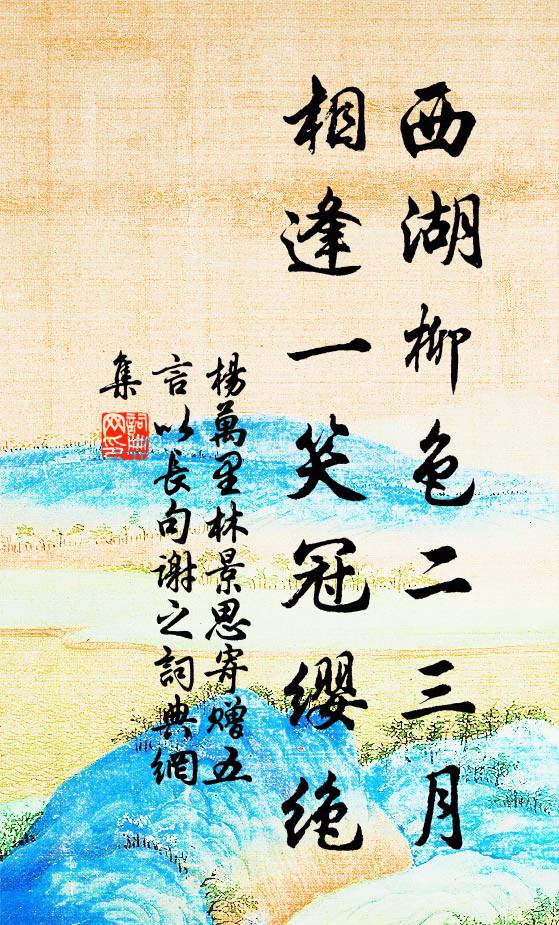 西湖柳色二三月
相逢一笑冠缨绝
楊萬里林景思寄赠五
言以長句谢之詞典網
集
詞典
网印